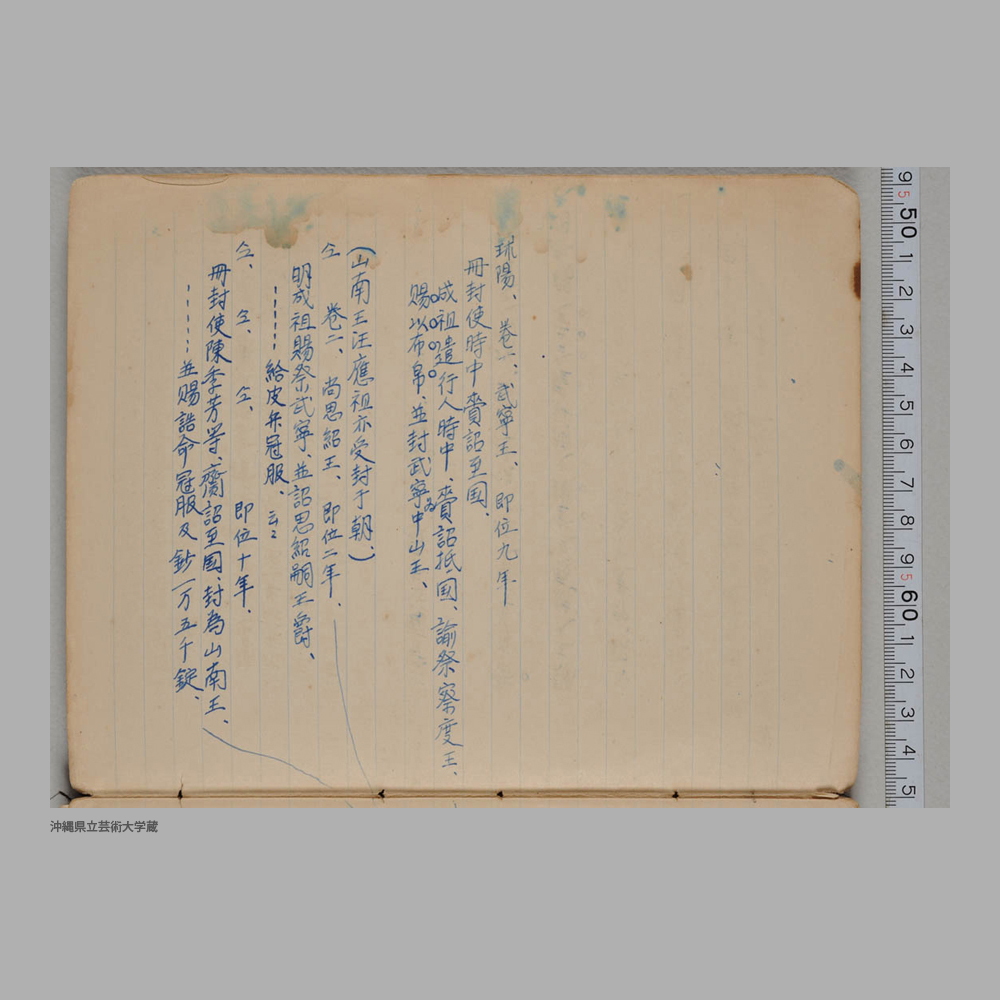 球陽、 巻一、武寧王、 即位九年
冊封使時中賷詔至国、
成祖遣行人時中、賷詔抵国、諭祭察度王、
賜以布帛、並封武寧為中山王、
(山南王汪應祖亦受封于朝、)
仝 巻二、 尚思紹王、即位二年、
明成祖賜祭武寧、並詔思紹嗣王爵、
……給皮弁冠服、云々
仝、 仝、 仝、 即位十年、
冊封使陳季芳等、齎詔至国、封為山南王、
……並賜誥命冠服及鈔一万五千錠、
9 5 50 1 2 3 4 5 6 7 8 9 5 60 1 2 3 4 5
沖縄県立芸術大学蔵